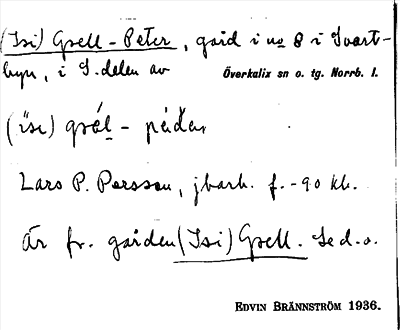 (Isi) Gsell-Peter, gård i no 8 i Svart-
byn, i S.delen av Överkalix sn o. tg. Norrb. l.
(ísi) gsél - péder
Lars P. Persson, jbark. f. -90 kl.
Är fr. gården (Isi) Gsell. Se d.o.
EDVIN BRÄNNSTRÖM 1936.